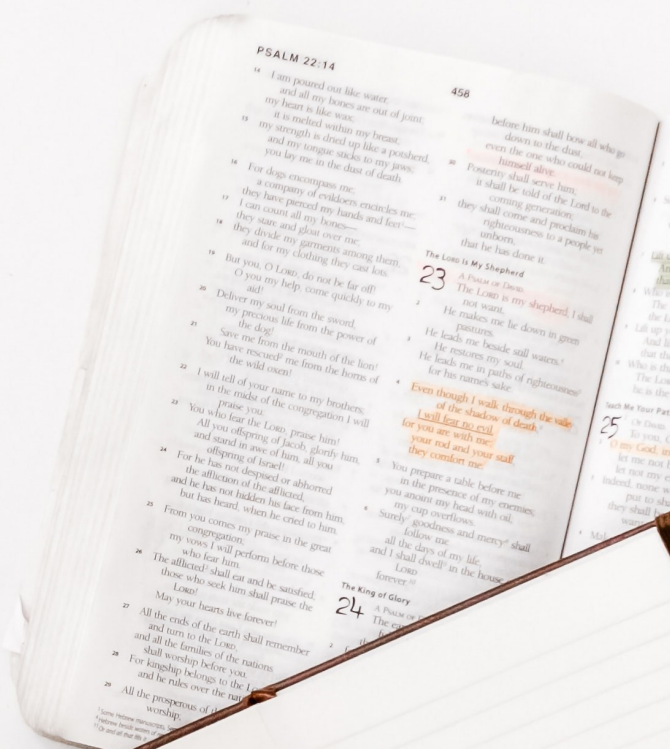 PSALM 22:14
458
14 I am poured out like water,
and all my bones are out of joint;
my heart is like wax;
it is melted within my breast;
15 my strength is dried up like a potsherd,
and my tongue sticks to my jaws;
you lay me in the dust of death.
16 For dogs encompass me;
a company of evildoers encircles me;
they have pierced my hands and feet—
17 I can count all my bones—
they stare and gloat over me;
18 they divide my garments among them,
and for my clothing they cast lots.
19 But you, O LORD, do not be far off!
O you my help, come quickly to my
aid!
20 Deliver my soul from the sword,
my precious life from the power of
the dog!
21 Save me from the mouth of the lion!
You have rescued me from the horns of
the wild oxen!
22 I will tell of your name to my brothers;
in the midst of the congregation I will
praise you:
23 You who fear the LORD, praise him!
All you offspring of Jacob, glorify him,
and stand in awe of him, all you
offspring of Israel!
24 For he has not despised or abhorred
the affliction of the afflicted,
and he has not hidden his face from him,
but has heard, when he cried to him.
25 From you comes my praise in the great
congregation;
my vows I will perform before those
who fear him.
26 The afflicted shall eat and be satisfied;
those who seek him shall praise the
LORD!
May your hearts live forever!
27 All the ends of the earth shall remember
and turn to the LORD,
and all the families of the nations
shall worship before you.
28 For kingship belongs to the
and he rules over the
29 All the prosperous of
worship;
before him shall bow all who go
down to the dust,
even the one who could not keep
himself alive.
30 Posterity shall serve him;
it shall be told of the Lord to the
coming generation;
31 they shall come and proclaim his
righteousness to a people yet
unborn,
that he has done it.
The LORD Is My Shepherd
23 A PSALM OF DAVID.
The LORD is my shepherd; I shall
not want.
2 He makes me lie down in green
pastures.
3 He leads me beside still waters.
He restores my soul.
He leads me in paths of righteousness
for his name's sake.
4 Even though I walk through the valley
of the shadow of death,
I will fear no evil,
for you are with me;
your rod and your staff,
they comfort me.
5 You prepare a table before me
in the presence of my enemies;
you anoint my head with oil;
my cup overflows.
6 Surely goodness and mercy shall
follow me
all the days of my life,
and I shall dwell in the house
LORD
forever.
The King of Glory
24 A PSALM OF
The
2
25